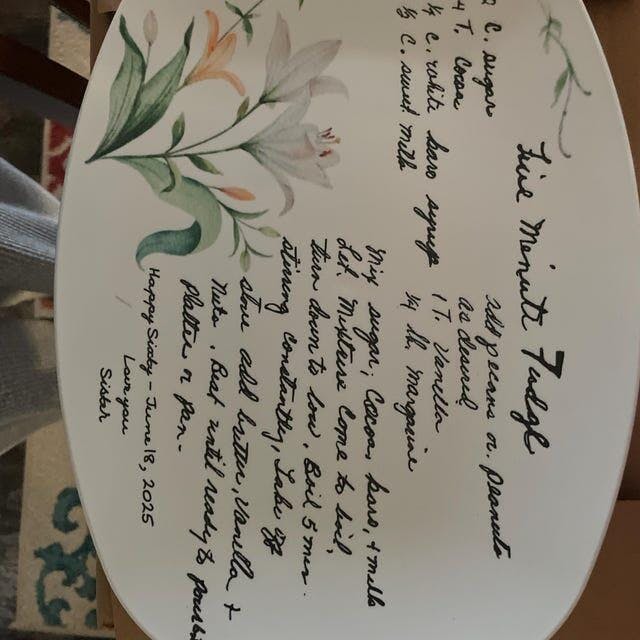 Five Minute Fudge
2 C. sugar
4 T. Cocoa
¼ C. white karo syrup
½ C. sweet milk
Add pecans or peanuts
as desired
1 T. Vanilla
¼ lb. margarine
Mix sugar, Cocoa, karo, + milk
Let Mixture Come to boil,
turn down to low. Boil 5 min.
stirring constantly. Take off
stove add butter, vanilla +
Nuts. Beat until ready to pour in
Platter or pan.
Happy Sixty - June 18, 2025
Love you
Sister